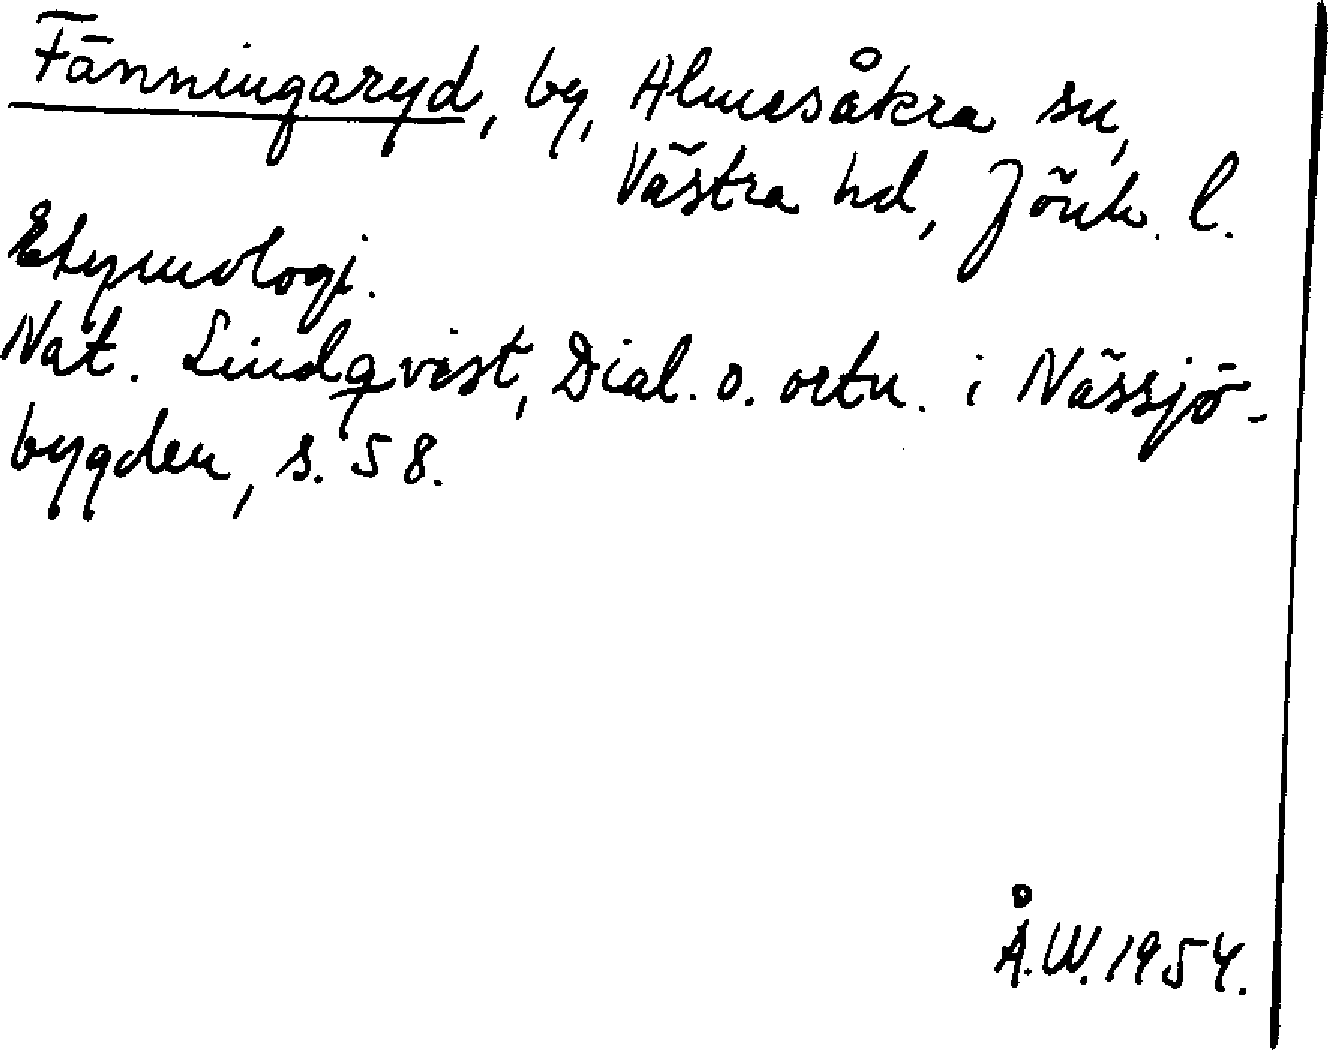 Fänningaryd, by, Almesåkra sn,
Västra hd, Jönk. l.
Etymologi.
Nat. Lindqvist, Dial. o. ortn. i Nässjö-
bygden, s. 58.
Å.W. 1954.